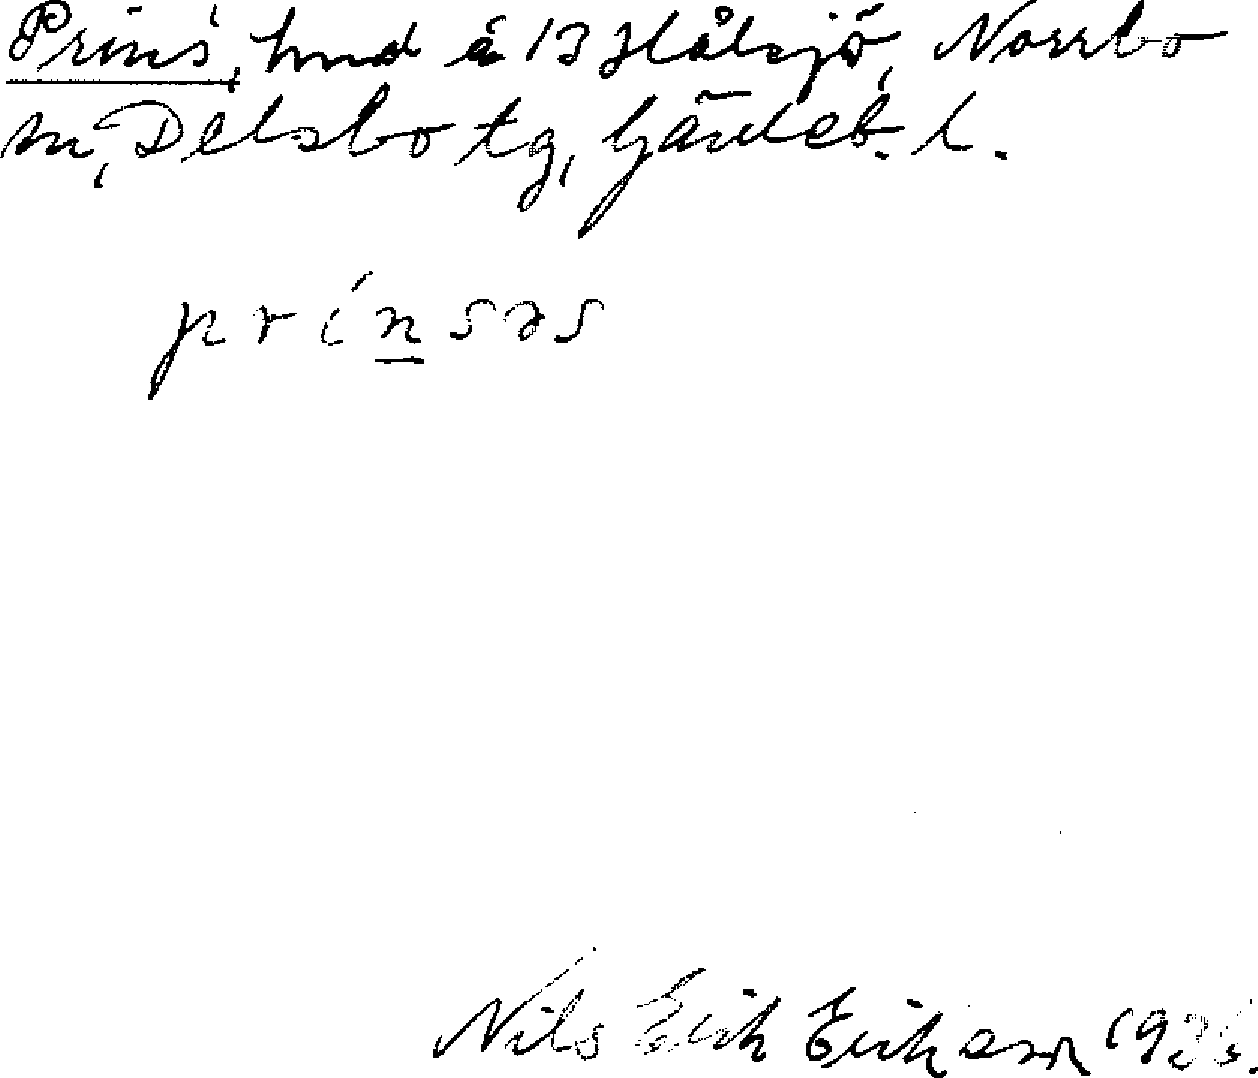 Prins', hmd å 13 Hålsjö, Norrbo
sn, Delsbo tg, Gävleb. l.
prínsəs
Nils Erik Eriksson